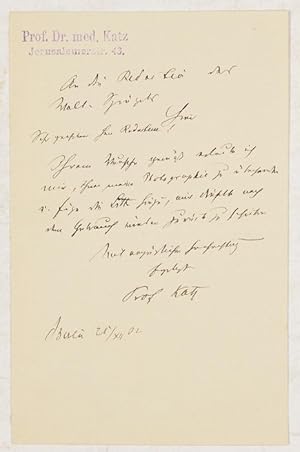 Prof. Dr. med. Katz
Jerusalemerstr. 43.
An die Redaktion des
Welt-Spiegels
Sehr geehrter Herr Redakteur!
Ihrem Wunsche gemäß erlaube ich
mir, Ihnen meine Photographie zu übersenden
u. füge die Bitte hinzu, mir dieselbe nach
dem Gebrauch wieder zurück zu senden
Mit vorzüglicher Hochachtung
ergebenst
Prof Katz
Berlin 21/XII 02